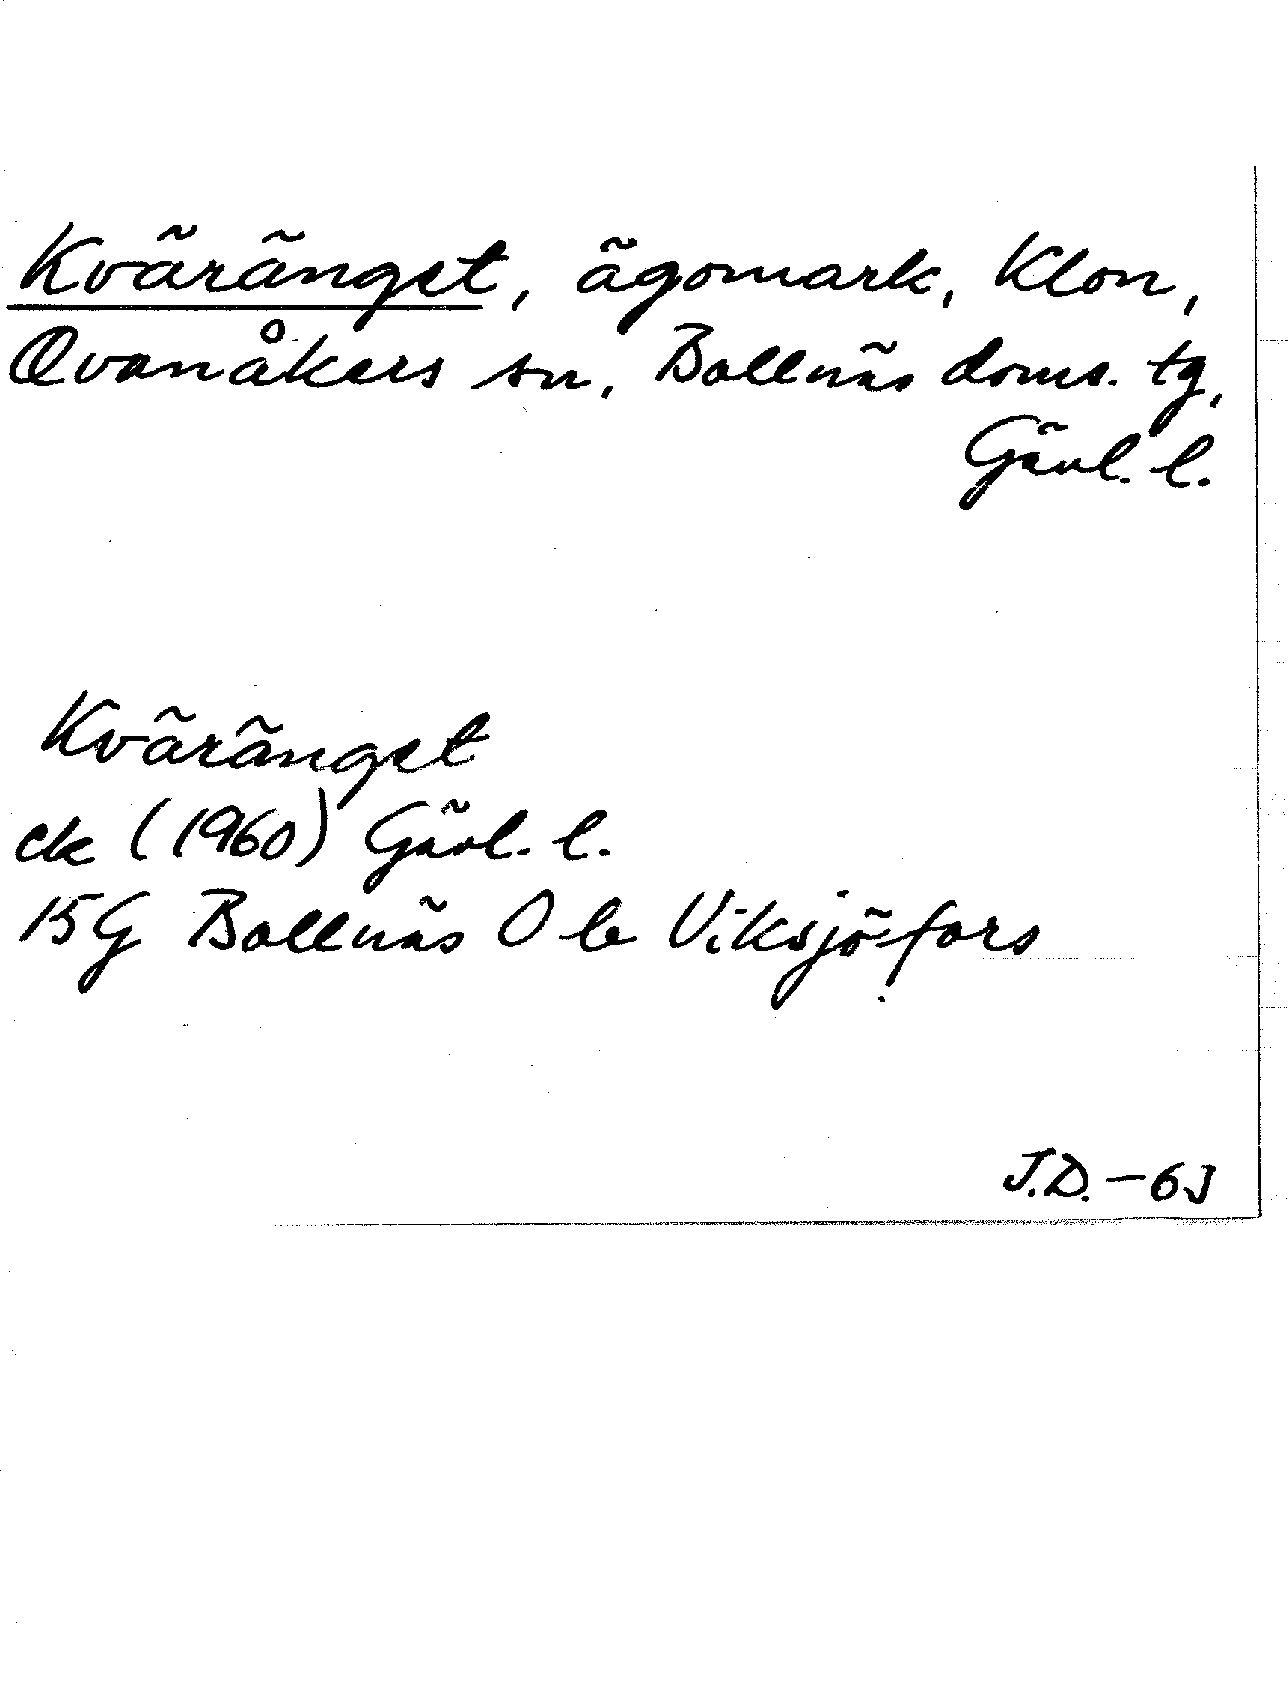 Kväränget, ägomark, Klon,
Ovanåkers sn, Bollnäs doms. tg,
Gävl. l.
Kväränget
ek (1960) Gävl. l.
15G Bollnäs 0 b Viksjöfors
J.D. - 63